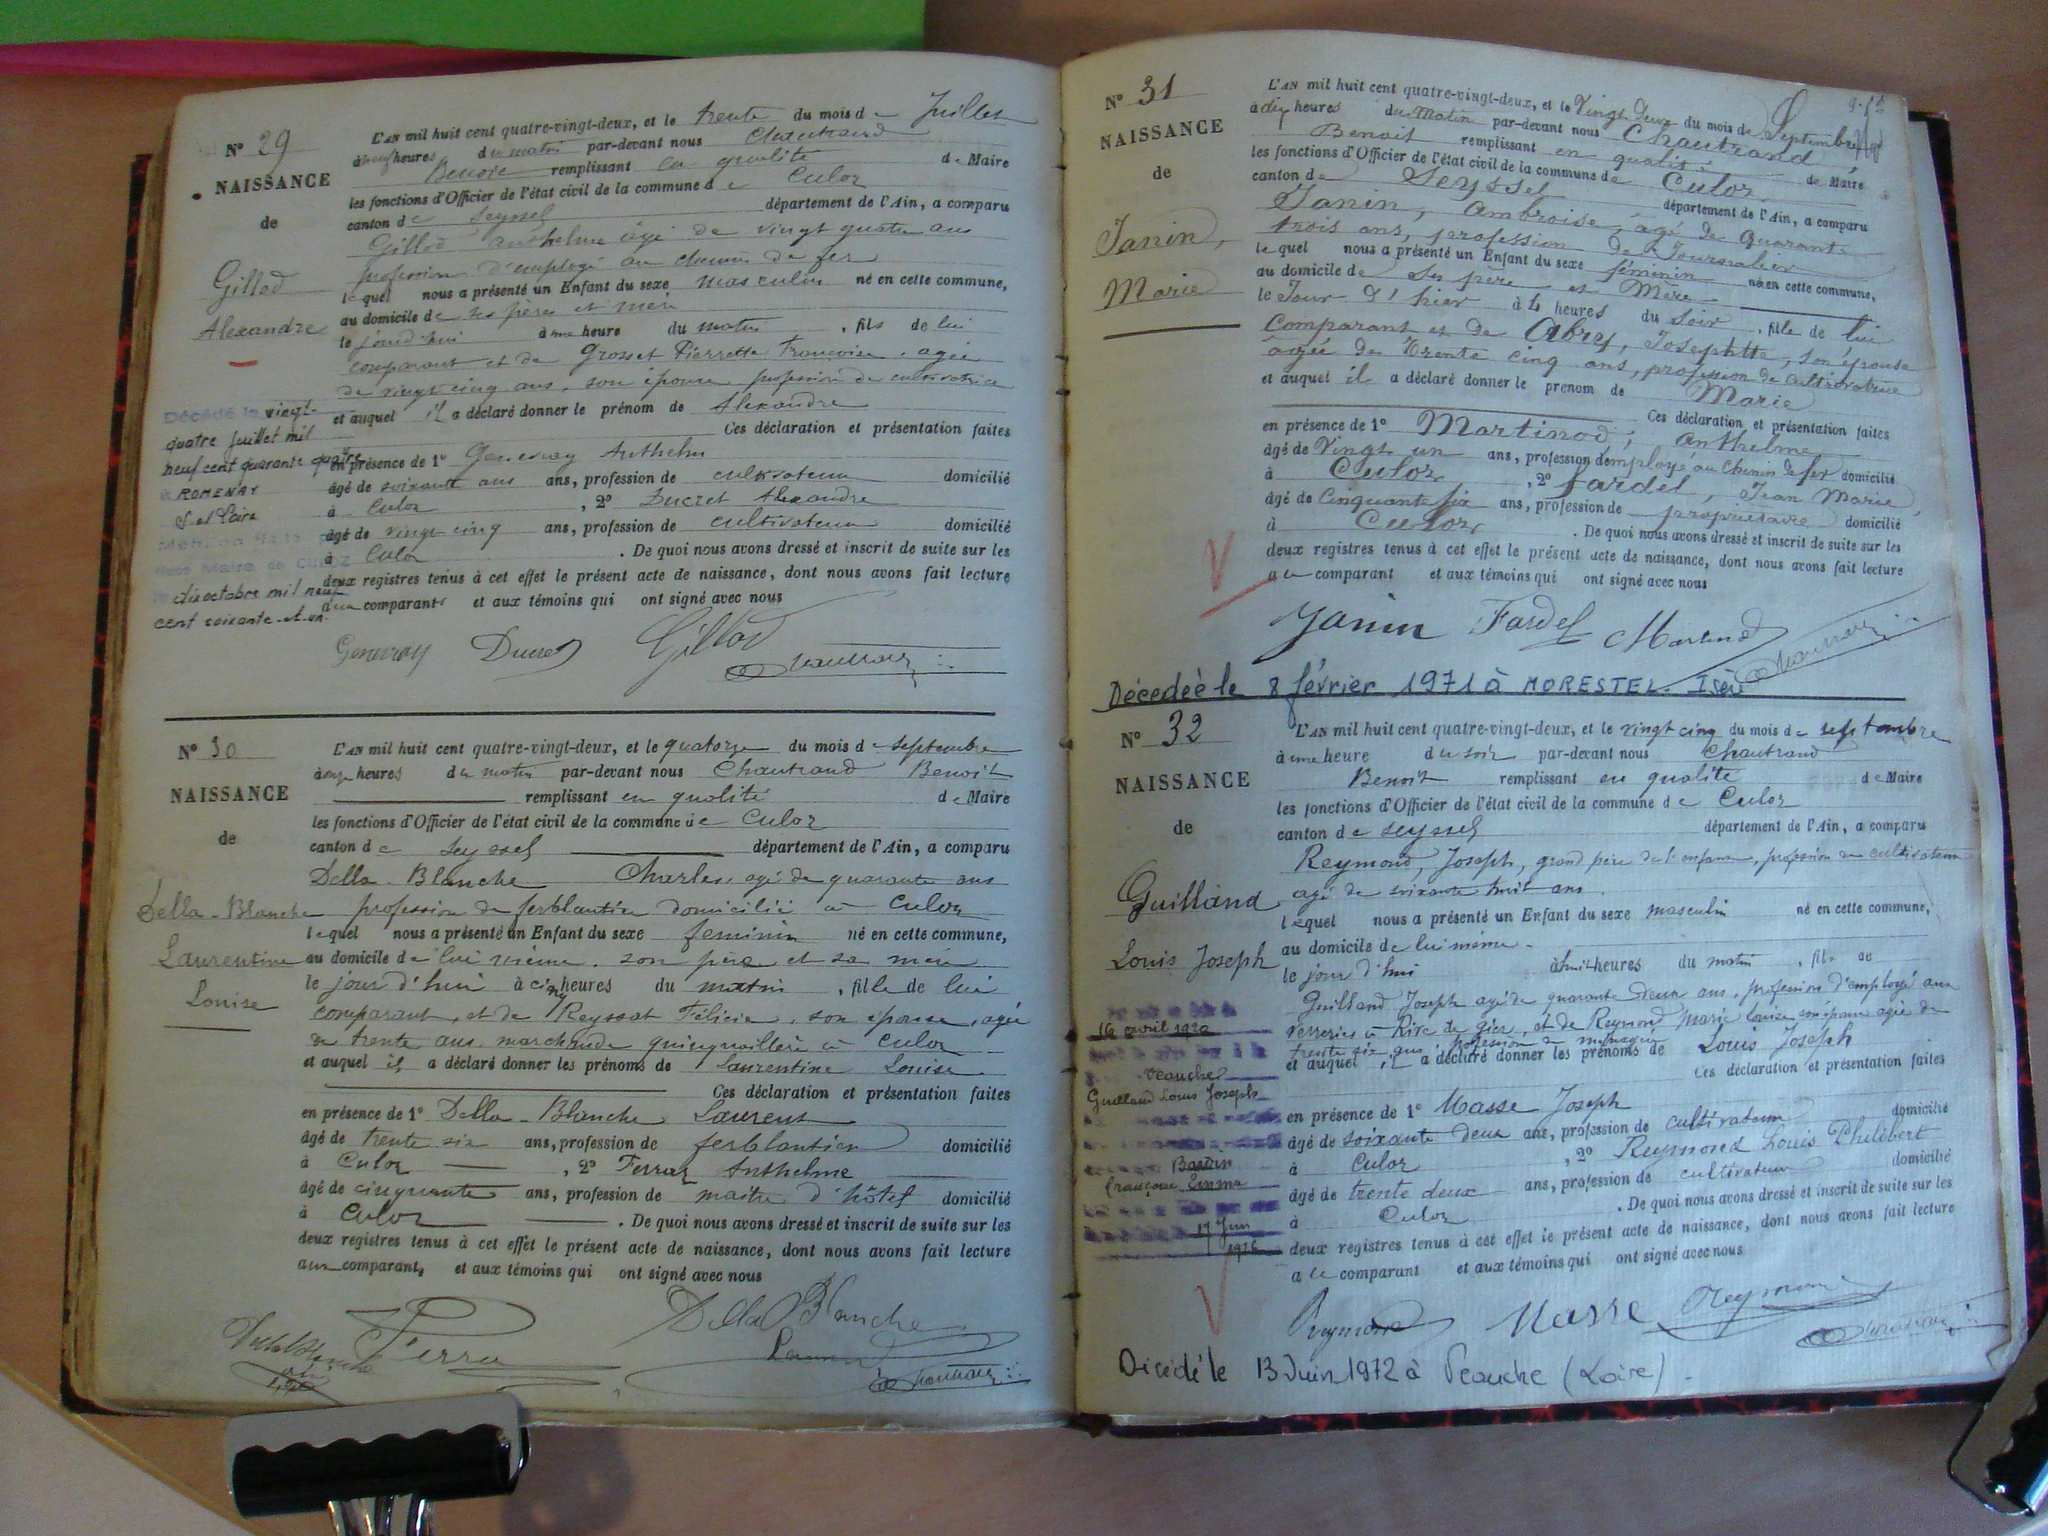 N° 29
NAISSANCE
de
Gillod
Alexandre
L'AN mil huit cent quatre-vingt-deux, et le trente du mois de Juillet
à neuf heures du matin par-devant nous Chautrand
Benoit remplissant en qualité de Maire
les fonctions d'Officier de l'état civil de la commune de Culoz
canton de Seyssel département de l'Ain, a comparu
Gillod Anthelme âgé de vingt quatre ans
profession d'employé au chemin de fer
lequel nous a présenté un Enfant du sexe masculin né en cette commune,
au domicile de ses père et mère
le jourd'hui à une heure du matin, fils de lui
comparant et de Grosset Pierrette Françoise, agée
de vingt cinq ans, son épouse profession de cultivatrice
et auquel il a déclaré donner le prénom de Alexandre
Ces déclaration et présentation faites
en présence de 1° Genevray Anthelme
âgé de soixante ans ans, profession de cultivateur domicilié
à Culoz, 2° Ducret Alexandre
âgé de vingt cinq ans, profession de cultivateur domicilié
à Culoz. De quoi nous avons dressé et inscrit de suite sur les
deux registres tenus à cet effet le présent acte de naissance, dont nous avons fait lecture
aux comparants et aux témoins qui ont signé avec nous
Décédé le vingt-
quatre juillet mil
neuf cent quarante quatre
à ROMENAY
S. et Loire
Mention faite
Mairie de CULOZ
dix octobre mil neuf
cent soixante-et-un
Genevray Ducret Gillod Chautrand
N° 30
NAISSANCE
de
Della-Blanche
Laurentine
Louise
L'AN mil huit cent quatre-vingt-deux, et le quatorze du mois de septembre
à onze heures du matin par-devant nous Chautrand Benoit
remplissant en qualité de Maire
les fonctions d'Officier de l'état civil de la commune de Culoz
canton de Seyssel département de l'Ain, a comparu
Della-Blanche Charles, agé de quarante ans
profession de ferblantier domicilié à Culoz
lequel nous a présenté un Enfant du sexe feminin né en cette commune,
au domicile de lui même. son père et sa mère
le jour d'hui à cinq heures du matin, fille de lui
comparant, et de Reyssat Félicie, son épouse, agée
de trente ans marchande quinquaillère à Culoz
et auquel il a déclaré donner les prénoms de Laurentine Louise
Ces déclaration et présentation faites
en présence de 1° Della-Blanche Laurent
âgé de trente six ans, profession de ferblantier domicilié
à Culoz, 2° Ferraz Anthelme
âgé de cinquante ans, profession de maitre d'hôtel domicilié
à Culoz. De quoi nous avons dressé et inscrit de suite sur les
deux registres tenus à cet effet le présent acte de naissance, dont nous avons fait lecture
aux comparants et aux témoins qui ont signé avec nous
Ferraz Della Blanche
Laurent Chautrand
N° 31
NAISSANCE
de
Janin,
Marie
L'AN mil huit cent quatre-vingt-deux, et le Vingt Deux du mois de Septembre
à dix heures du Matin par-devant nous Chautrand
Benoit remplissant en qualité de Maire
les fonctions d'Officier de l'état civil de la commune de Culoz
canton de Seyssel département de l'Ain, a comparu
Janin, Ambroise, âgé de quarante
trois ans, profession de Journalier
lequel nous a présenté un Enfant du sexe féminin né en cette commune,
au domicile de Ses père et Mère
le Jour d'hier à 4 heures du Soir, fille de lui
Comparant et de Abry, Josephtte, son épouse
âgée de Trente cinq ans, profession de cultivatrice
et auquel il a déclaré donner le prenom de Marie
Ces déclaration et présentation faites
en présence de 1° Martinod, Anthelme
âgé de Vingt un ans, profession d'employé au Chemin de fer domicilié
à Culoz, 2° Fardel, Jean Marie,
âgé de Cinquante six ans, profession de propriétaire domicilié
à Culoz. De quoi nous avons dressé et inscrit de suite sur les
deux registres tenus à cet effet le présent acte de naissance, dont nous avons fait lecture
a u comparant et aux témoins qui ont signé avec nous
Janin Fardel Martinod Chautrand
Décédée le 8 février 1971 à MORESTEL. Isère
N° 32
NAISSANCE
de
Guilland
Louis Joseph
L'AN mil huit cent quatre-vingt-deux, et le vingt cinq du mois de septembre
à une heure du soir par-devant nous Chautrand
Benoit remplissant en qualité de Maire
les fonctions d'Officier de l'état civil de la commune de Culoz
canton de Seyssel département de l'Ain, a comparu
Reymond, Joseph, grand père de l'enfant, profession de cultivateur
agé de soixante huit ans.
lequel nous a présenté un Enfant du sexe masculin né en cette commune,
au domicile de lui même.
le jour d'hui à huit heures du matin, fils de
Guilland Joseph agé de quarante deux ans, profession d'employé aux
verreries à Rive de Gier, et de Reymond Marie Louise son épouse agée de
trente six ans, profession de ménagère
et auquel il a déclaré donner les prénoms de Louis Joseph
Ces déclaration et présentation faites
en présence de 1° Masse Joseph
âgé de soixante deux ans, profession de cultivateur domicilié
à Culoz, 2° Reymond Louis Philibert
âgé de trente deux ans, profession de cultivateur domicilié
à Culoz. De quoi nous avons dressé et inscrit de suite sur les
deux registres tenus à cet effet le présent acte de naissance, dont nous avons fait lecture
a u comparant et aux témoins qui ont signé avec nous
16 avril 1920
Veauche
Guilland Louis Joseph
Bardin
Françoise Emma
17 Juin
Reymond Masse Reymond
Chautrand
Décédé le 13 Juin 1972 à Veauche (Loire).